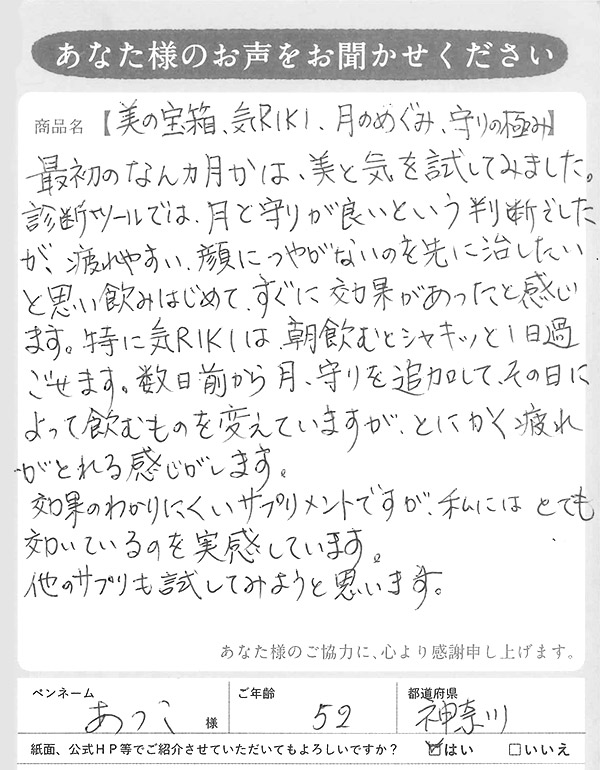 あなた様のお声をお聞かせください
商品名【美の宝箱、気RIKI、月のめぐみ、守りの極み】
最初のなんカ月かは、美と気を試してみました。
診断ツールでは、月と守りが良いという判断でした
が、疲れやすい、顔につやがないのを先に治したい
と思い飲みはじめて、すぐに効果があったと感じ
ます。特に気RIKIは、朝飲むとシャキッと1日過
ごせます。数日前から月、守りを追加して、その日に
よって飲むものを変えていますが、とにかく疲れ
がとれる感じがします。
効果のわかりにくいサプリメントですが、私にはとても
効いているのを実感しています。
他のサプリも試してみようと思います。
あなた様のご協力に、心より感謝申し上げます。
ペンネーム ご年齢 都道府県
あっこ 様 52 神奈川
紙面、公式HP等でご紹介させていただいてもよろしいですか？ ☑はい □いいえ